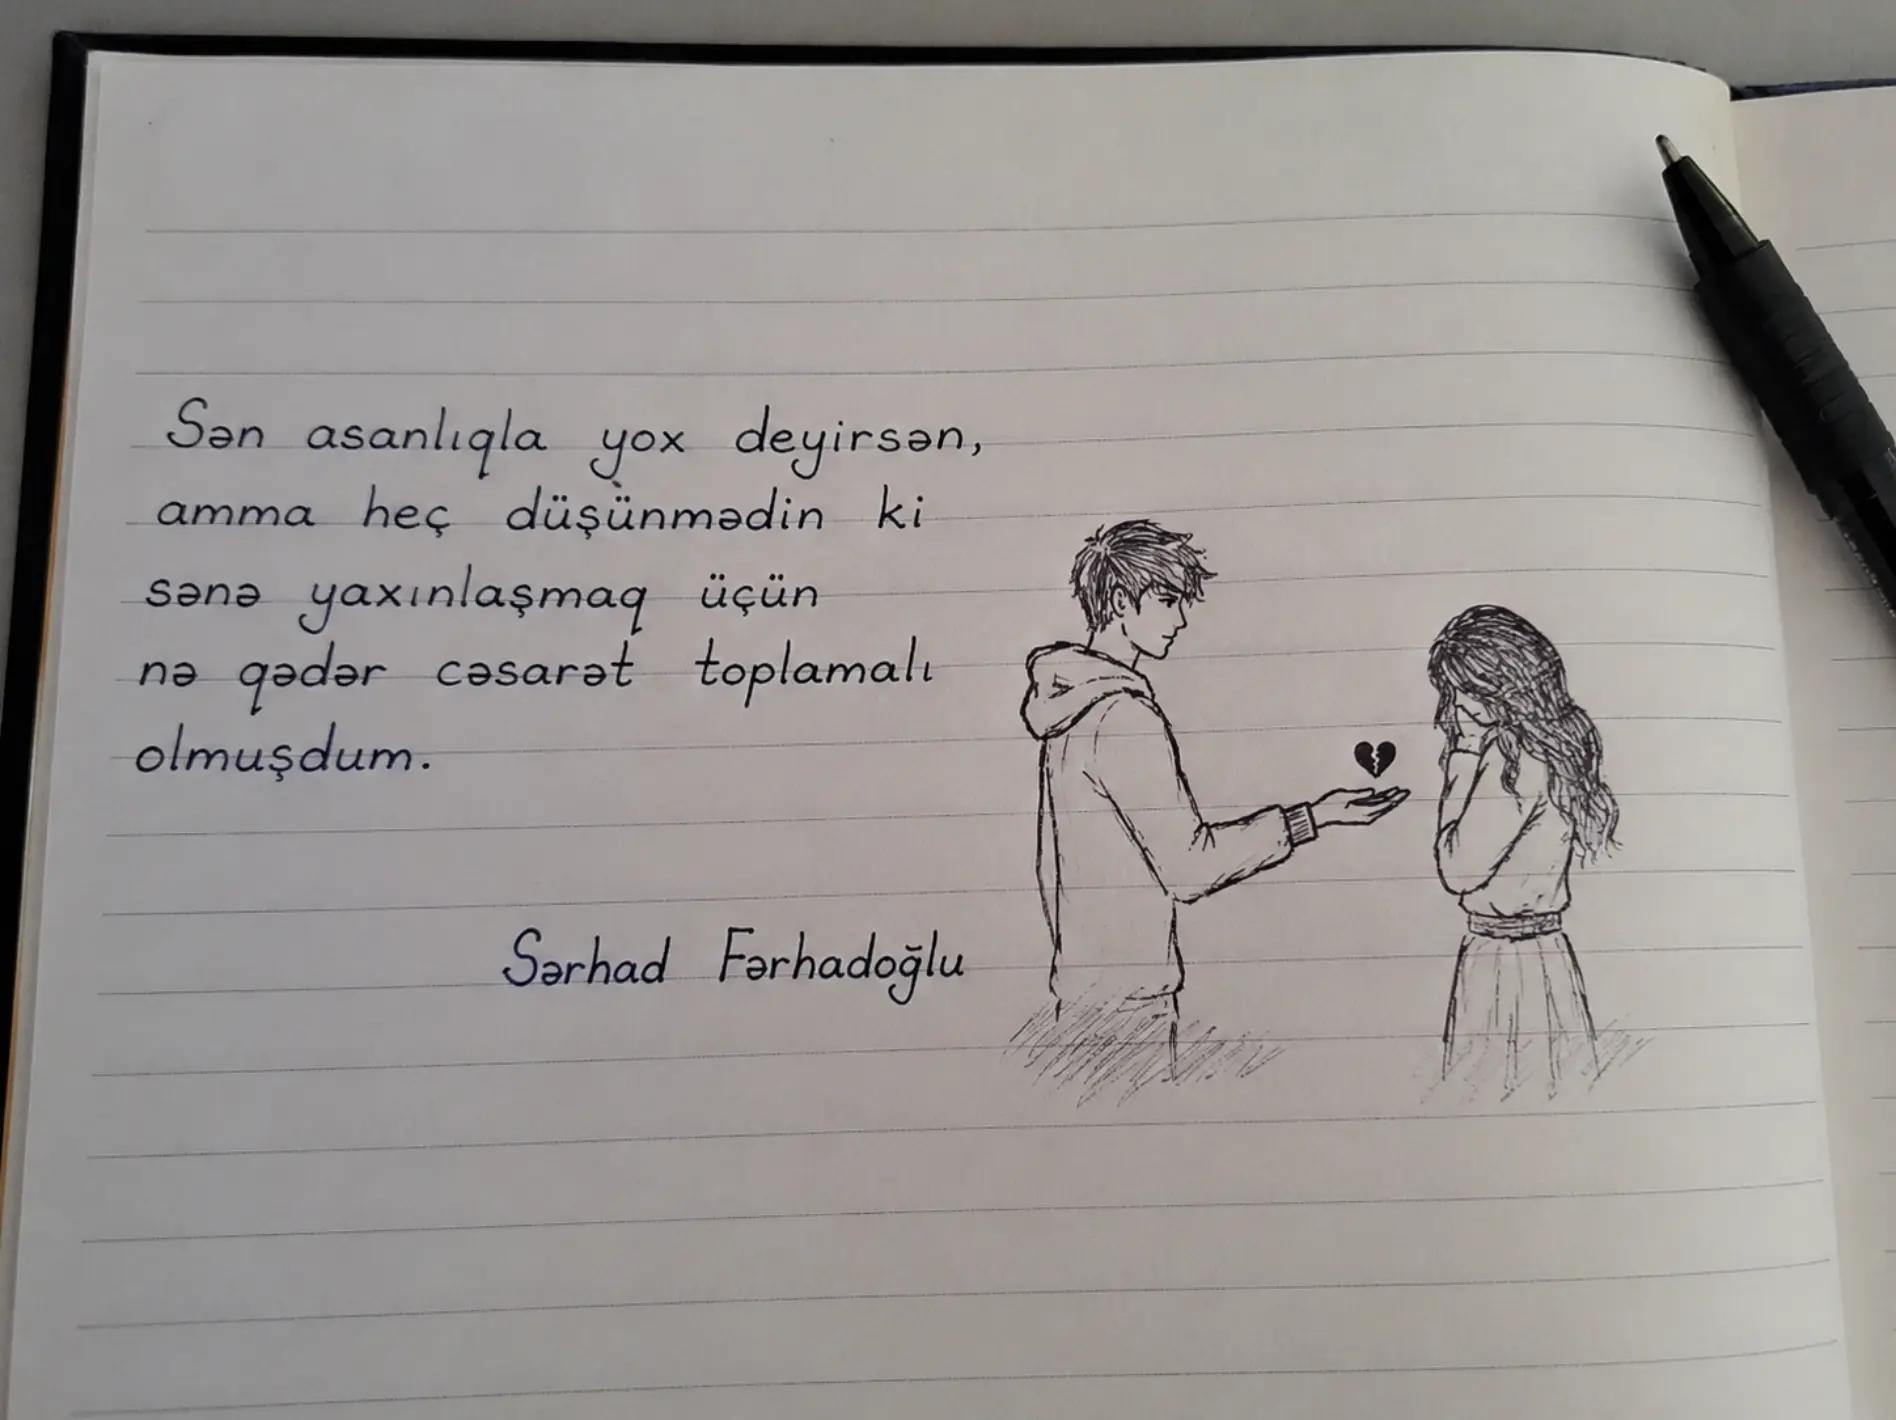 Sən asanlıqla yox deyirsən,
amma heç düşünmədin ki
sənə yaxınlaşmaq üçün
nə qədər cəsarət toplamalı
olmuşdum.
Sərhad Fərhadoğlu